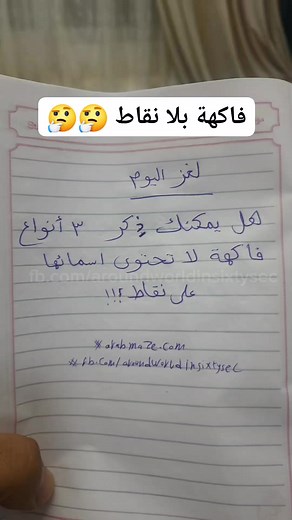 فاكهة بلا نقاط 🤔🤔
لغز اليوم
هل يمكنك ذكر ٣ أنواع
فاكهة لا تحتوى اسمائها
على نقاط ؟!!
fb.com/aroundworldinsixtysec
* arabmaze.com
* fb.com/aroundworldinsixtysec